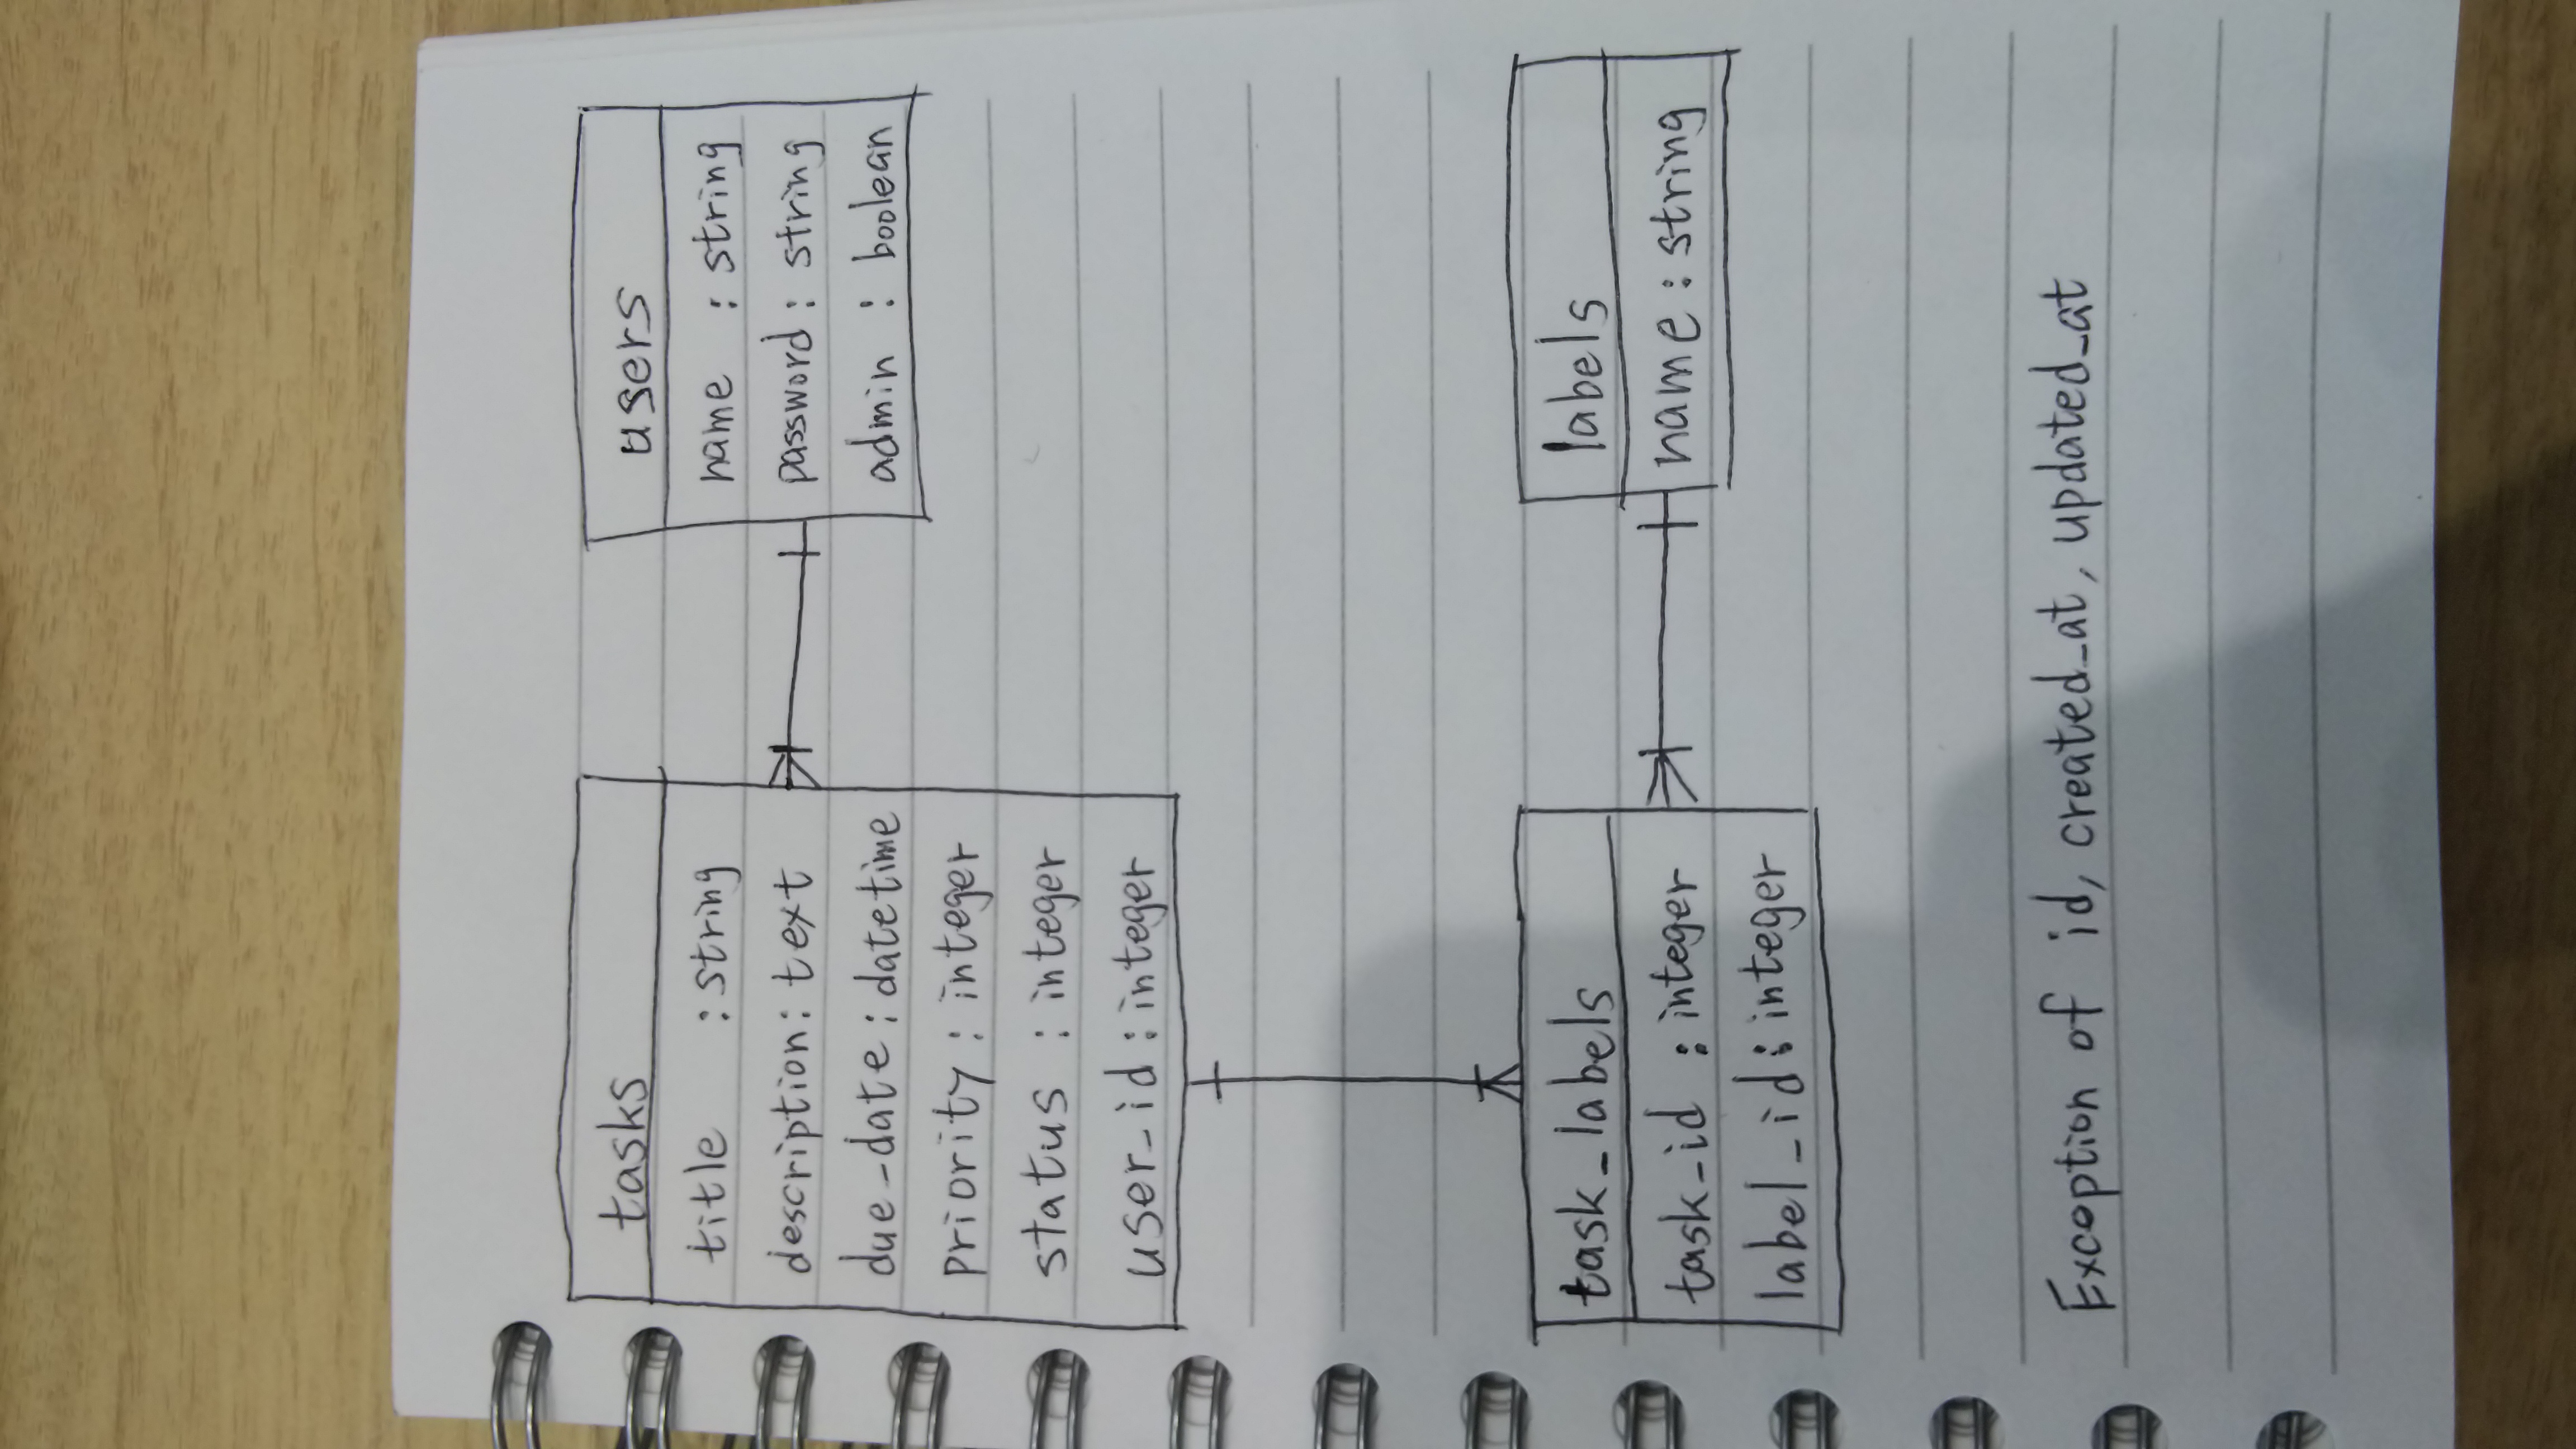 tasks
title : string
description : text
due_date : datetime
priority : integer
status : integer
user_id : integer
users
name : string
password : string
admin : boolean
task_labels
task_id : integer
label_id : integer
labels
name : string
Exception of id, created_at, updated_at